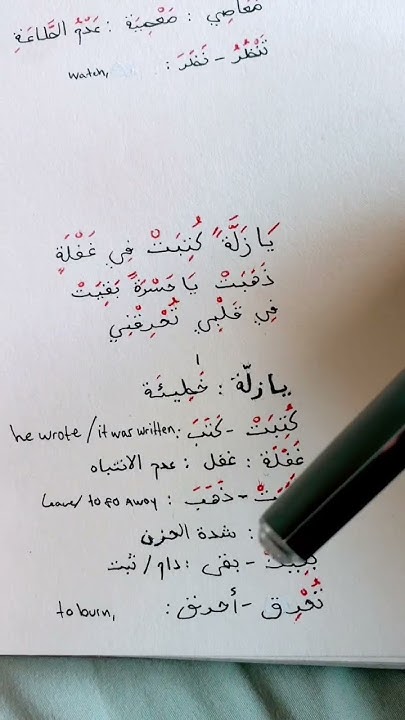 مَعَاصِي : مَعْصِيَة : عَدَمُ الطَّاعَةِ
تَنْظُرُ - نَظَرَ : watch,
يَا زَلَّةً كُتِبَتْ فِي غَفْلَةٍ
ذَهَبَتْ يَا حَسْرَةً بَقِيَتْ
فِي قَلْبِي تُحْرِقْنِي
يا زلّة : خَطِيئَة
كُتِبَتْ - كَتَبَ : he wrote / it was written
غَفْلَة : غفل : عدم الانتباه
- ذَهَبَ : Leave / to go away
: شدة الحزن
بَقِيَتْ - بقى : دام / ثبت
تُحْرِق - أحرق : to burn,